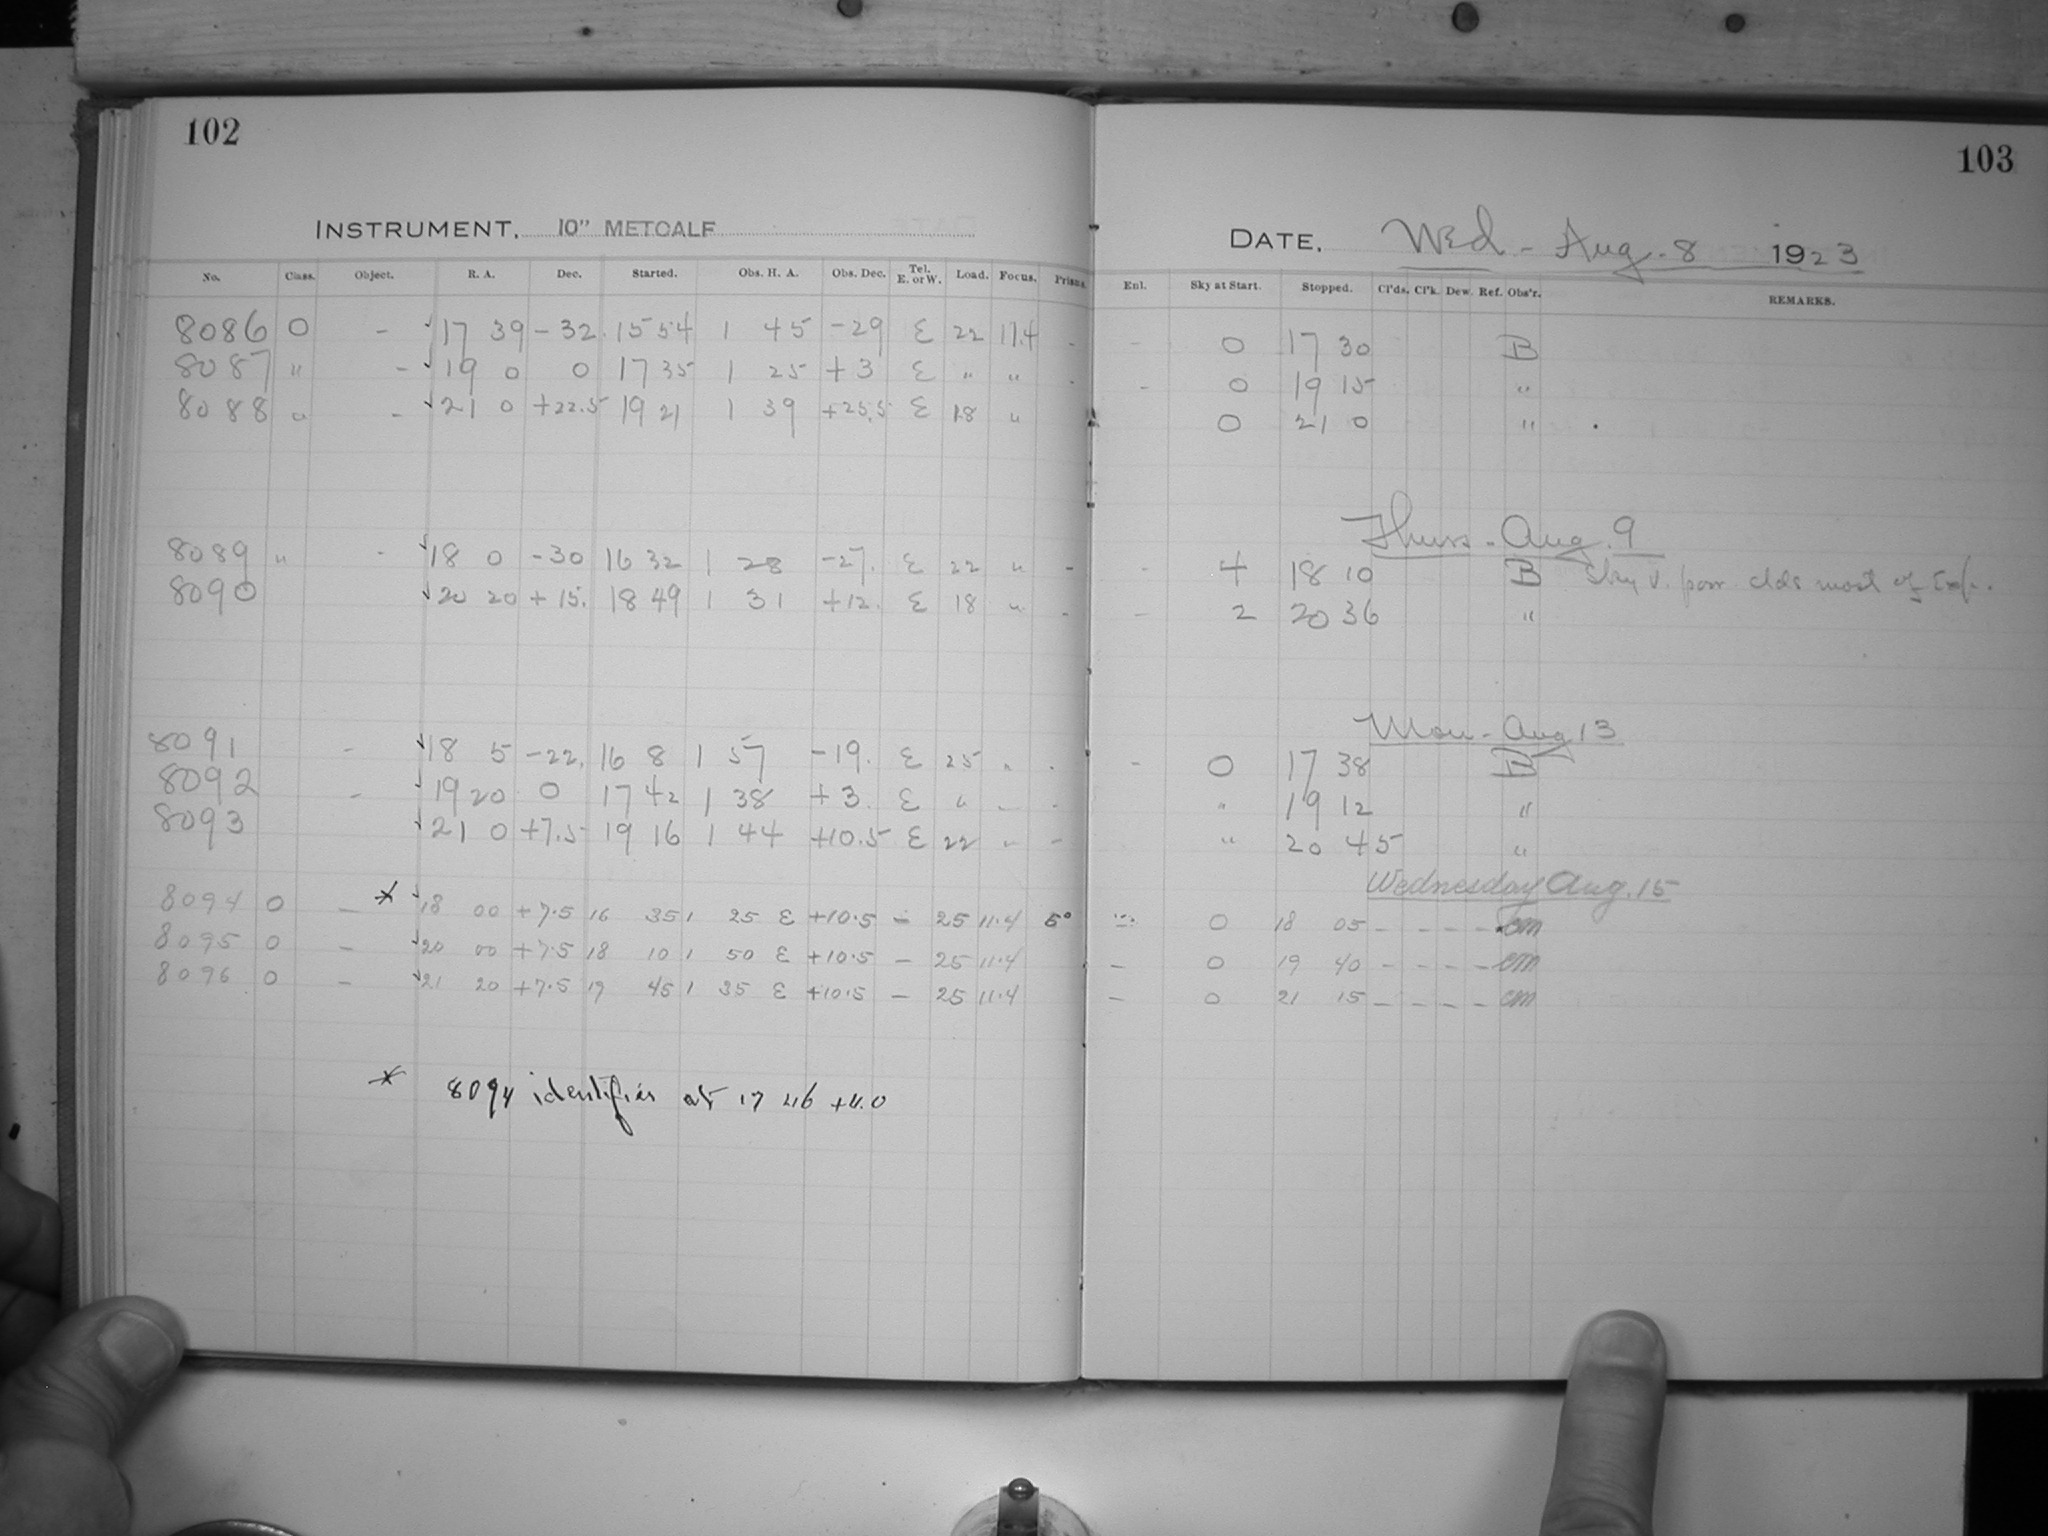 102
INSTRUMENT. 10" METCALF
No. Class. Object. R. A. Dec. Started. Obs. H. A. Obs. Dec. Tel. E. or W. Load. Focus. Prism.
8086 O - ✓ 17 39 - 32. 15 54 1 45 -29 E 22 11.4 -
8087 " - ✓ 19 0 0 17 35 1 25 +3 E " " -
8088 " - ✓ 21 0 +22.5 19 21 1 39 +25.5 E 18 "
8089 " - ✓ 18 0 -30 16 32 1 28 -27. E 22 " -
8090 ✓ 20 20 + 15. 18 49 1 31 +12. E 18 " -
8091 - ✓ 18 5 -22. 16 8 1 57 -19. E 25 " -
8092 - ✓ 19 20 0 17 42 1 38 +3. E " " -
8093 ✓ 21 0 +7.5 19 16 1 44 +10.5 E 22 " -
8094 O - * ✓ 18 00 +7.5 16 35 1 25 E +10.5 - 25 11.4 5°
8095 O - ✓ 20 00 +7.5 18 10 1 50 E +10.5 - 25 11.4
8096 O - ✓ 21 20 +7.5 19 45 1 35 E +10.5 - 25 11.4
* 8094 identifies at 17 46 +4.0
103
DATE. Wed - Aug. 8 1923
Enl. Sky at Start. Stopped. Cl'ds. Cl'k. Dew. Ref. Obs'r. REMARKS.
- 0 17 30 B
- 0 19 15 "
0 21 0 "
Thurs - Aug. 9
- 4 18 10 B Sky v. poor clds most of Exp.
- 2 20 36 "
Mon - Aug 13
- 0 17 38 B
" 19 12 "
" 20 45 "
Wednesday Aug. 15
- 0 18 05 - - - - cm
- 0 19 40 - - - - cm
- 0 21 15 - - - - cm